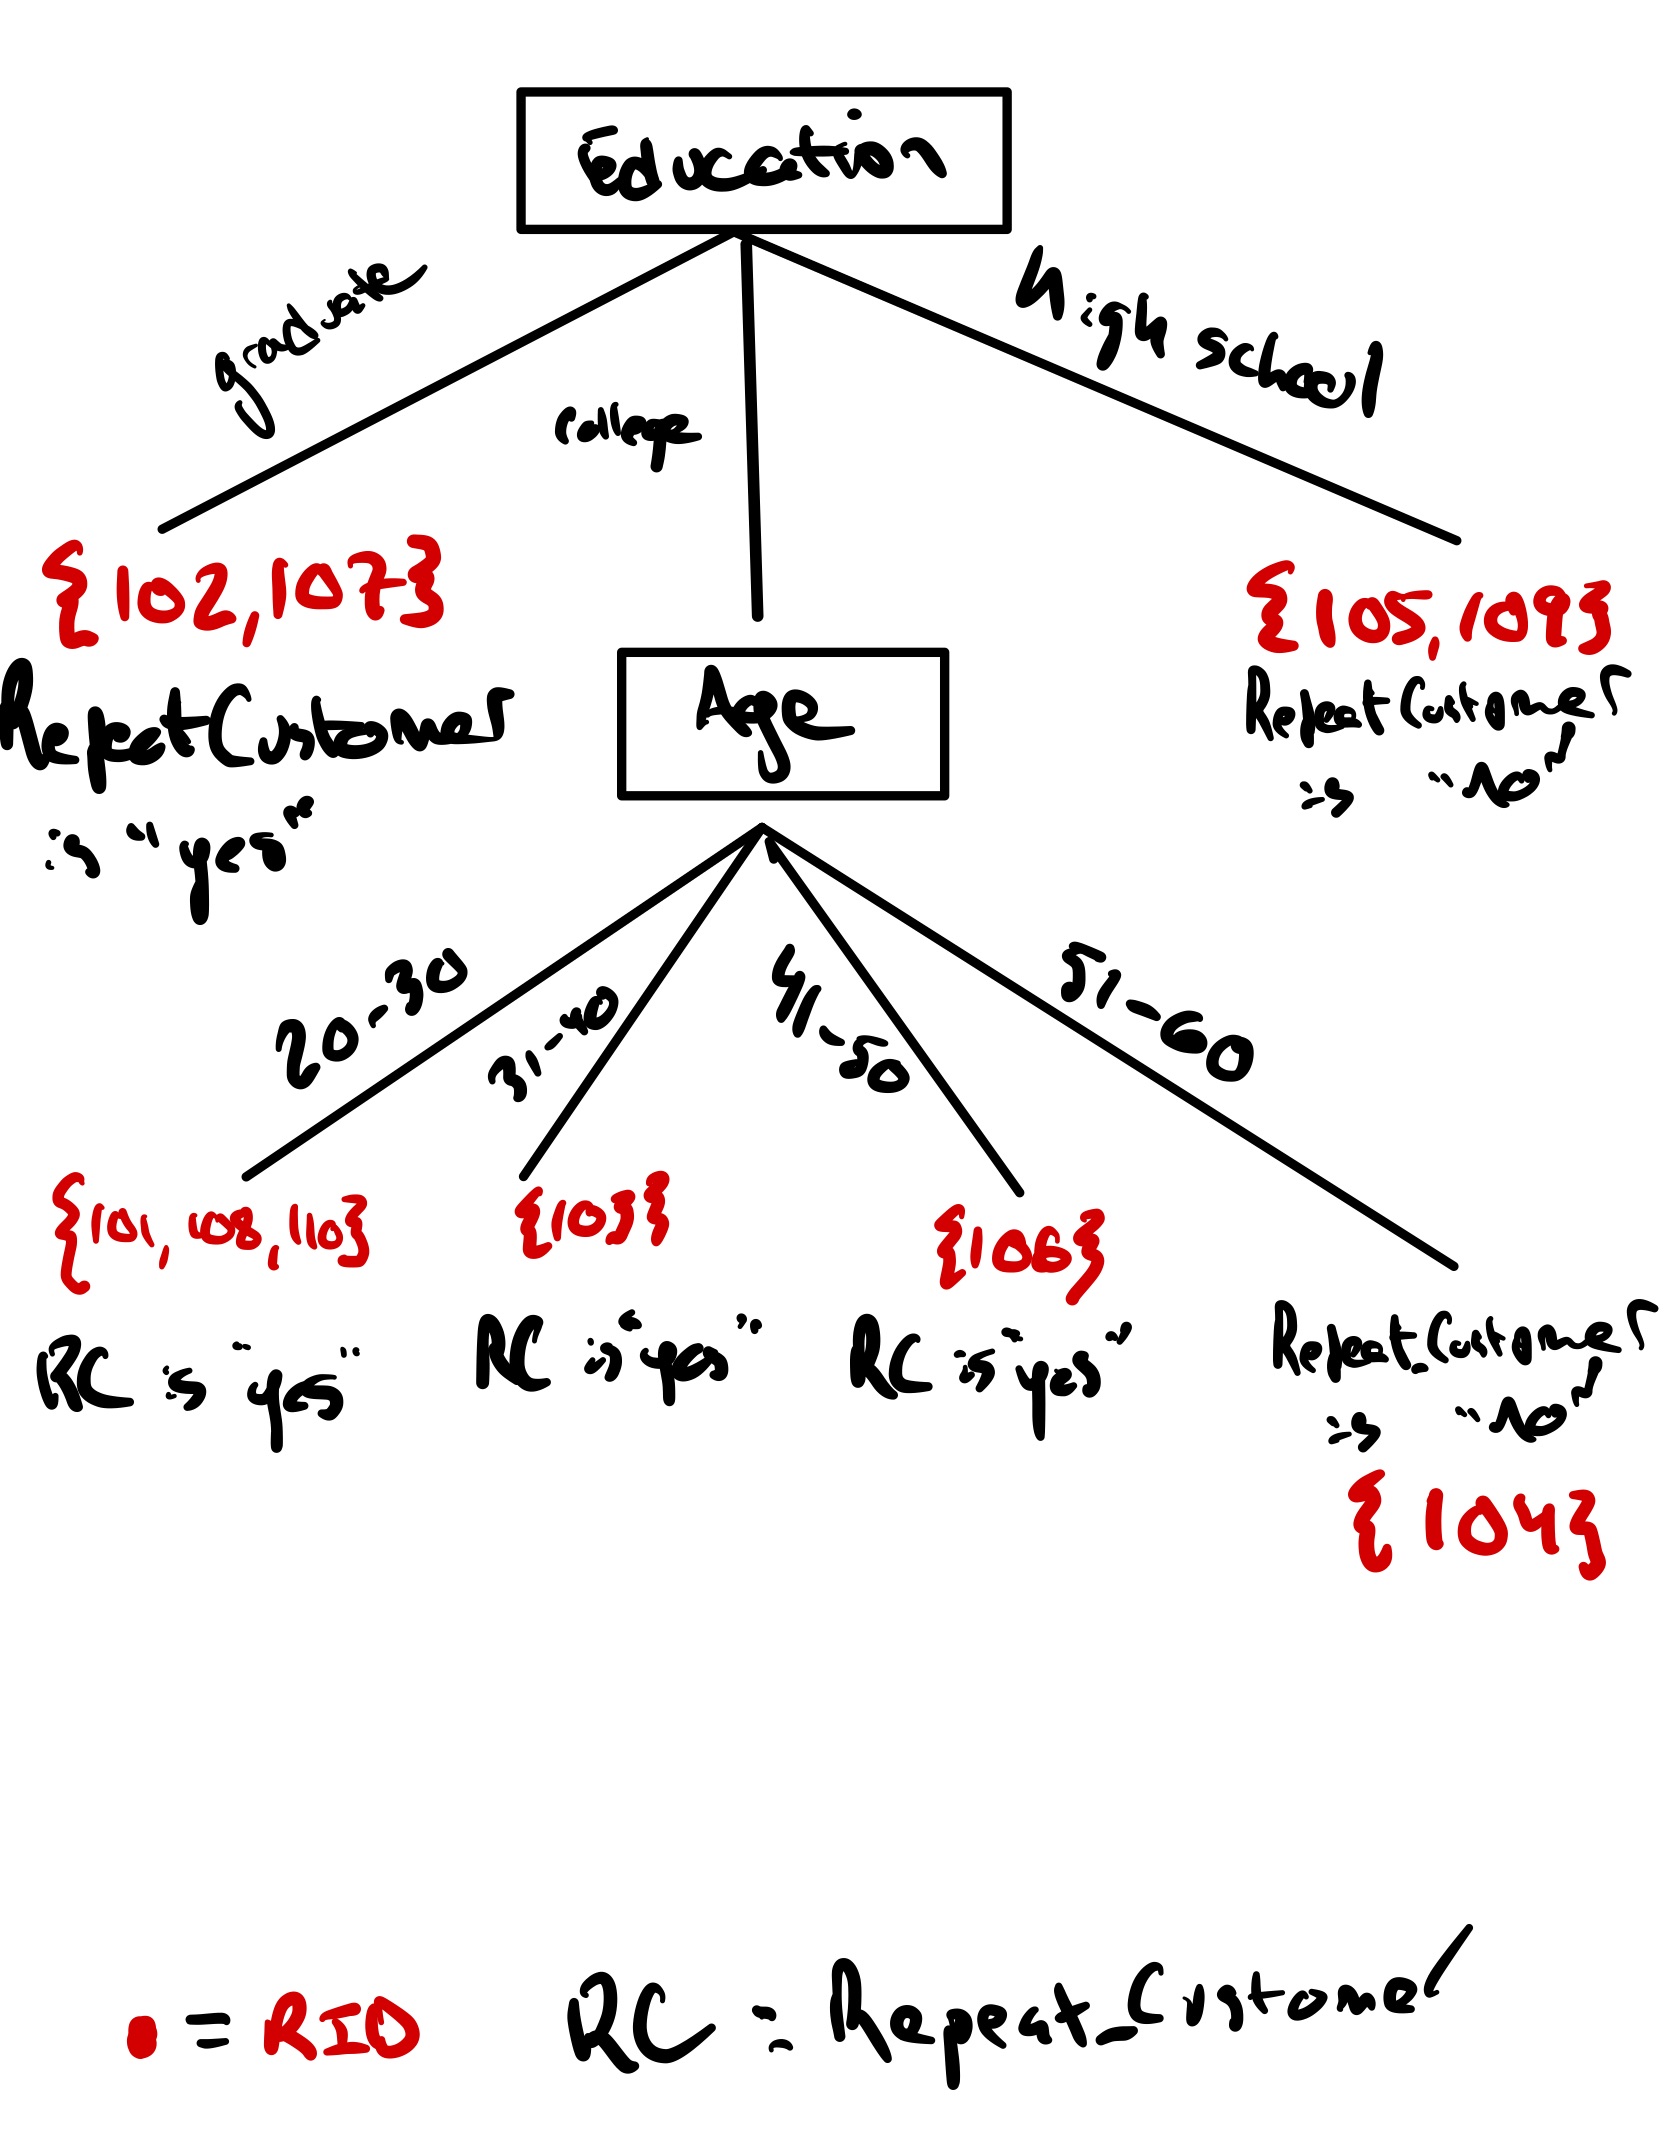 Education
graduate
college
High school
{102,107}
{105,109}
Repeat Customer
is "yes"
Age
Repeat Customer
is "No"
20-30
31-40
41-50
51-60
{101,108,110}
{103}
{106}
RC is "yes"
RC is "yes"
RC is "yes"
Repeat_Customer
is "No"
{104}
= RID
RC = Repeat_Customer